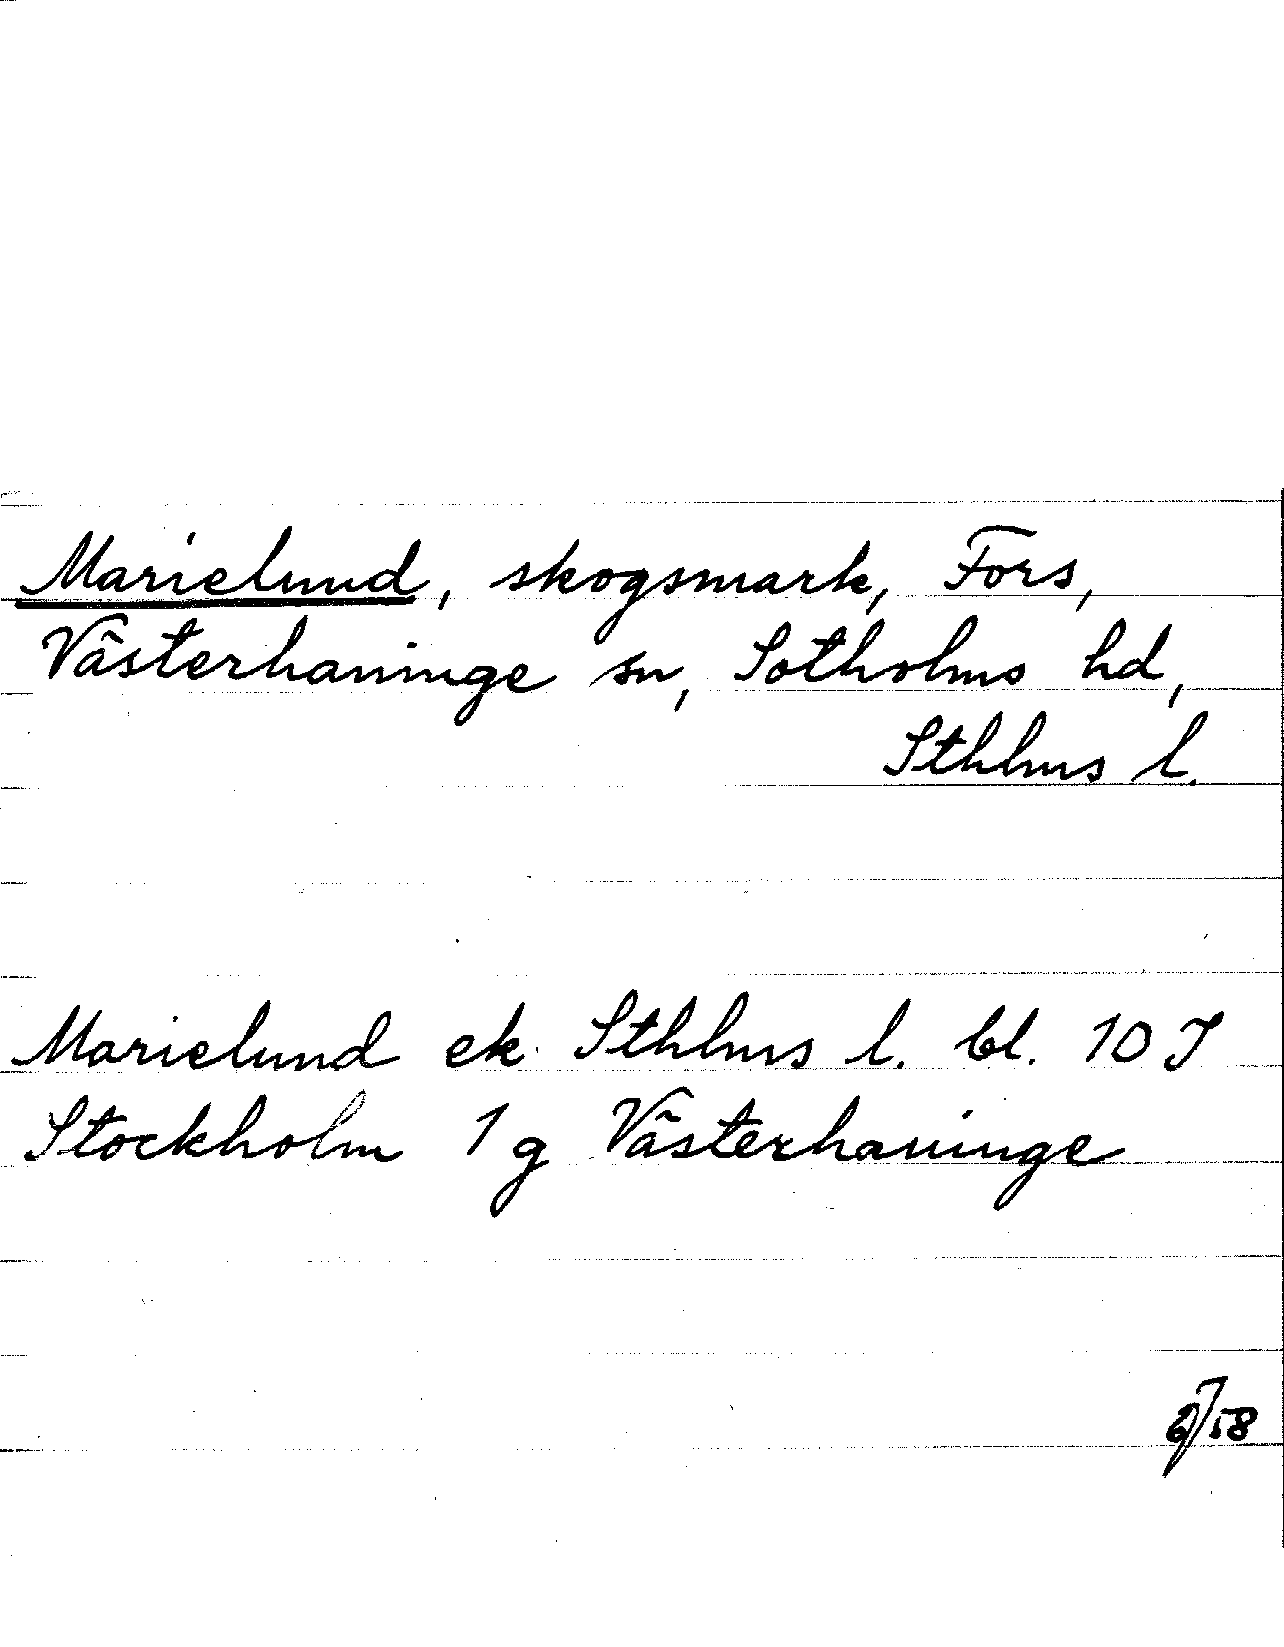 Marielund, skogsmark, Fors,
Västerhaninge sn, Sotholms hd,
Sthlms l.
Marielund ek. Sthlms l. bl. 10 I
Stockholm 1 g Västerhaninge